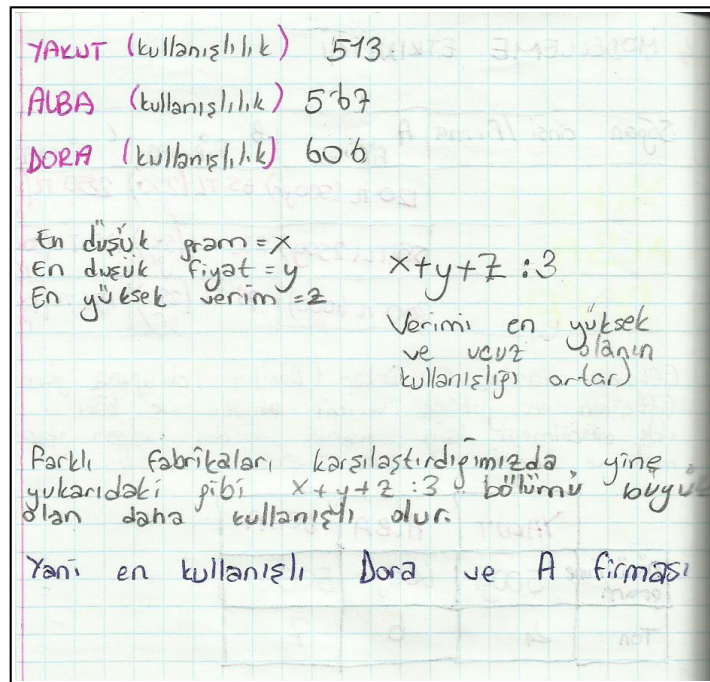 YAKUT (kullanışlılık) 513
ALBA (kullanışlılık) 567
DORA (kullanışlılık) 606
En düşük gram = x
En düşük fiyat = y
En yüksek verim = z
x+y+z :3
Verimi en yüksek
ve ucuz olanın
kullanışlığı artar)
Farklı fabrikaları karşılaştırdığımızda yine
yukarıdaki gibi x+y+z :3 bölümü büyük
olan daha kullanışlı olur.
Yani en kullanışlı Dora ve A firması